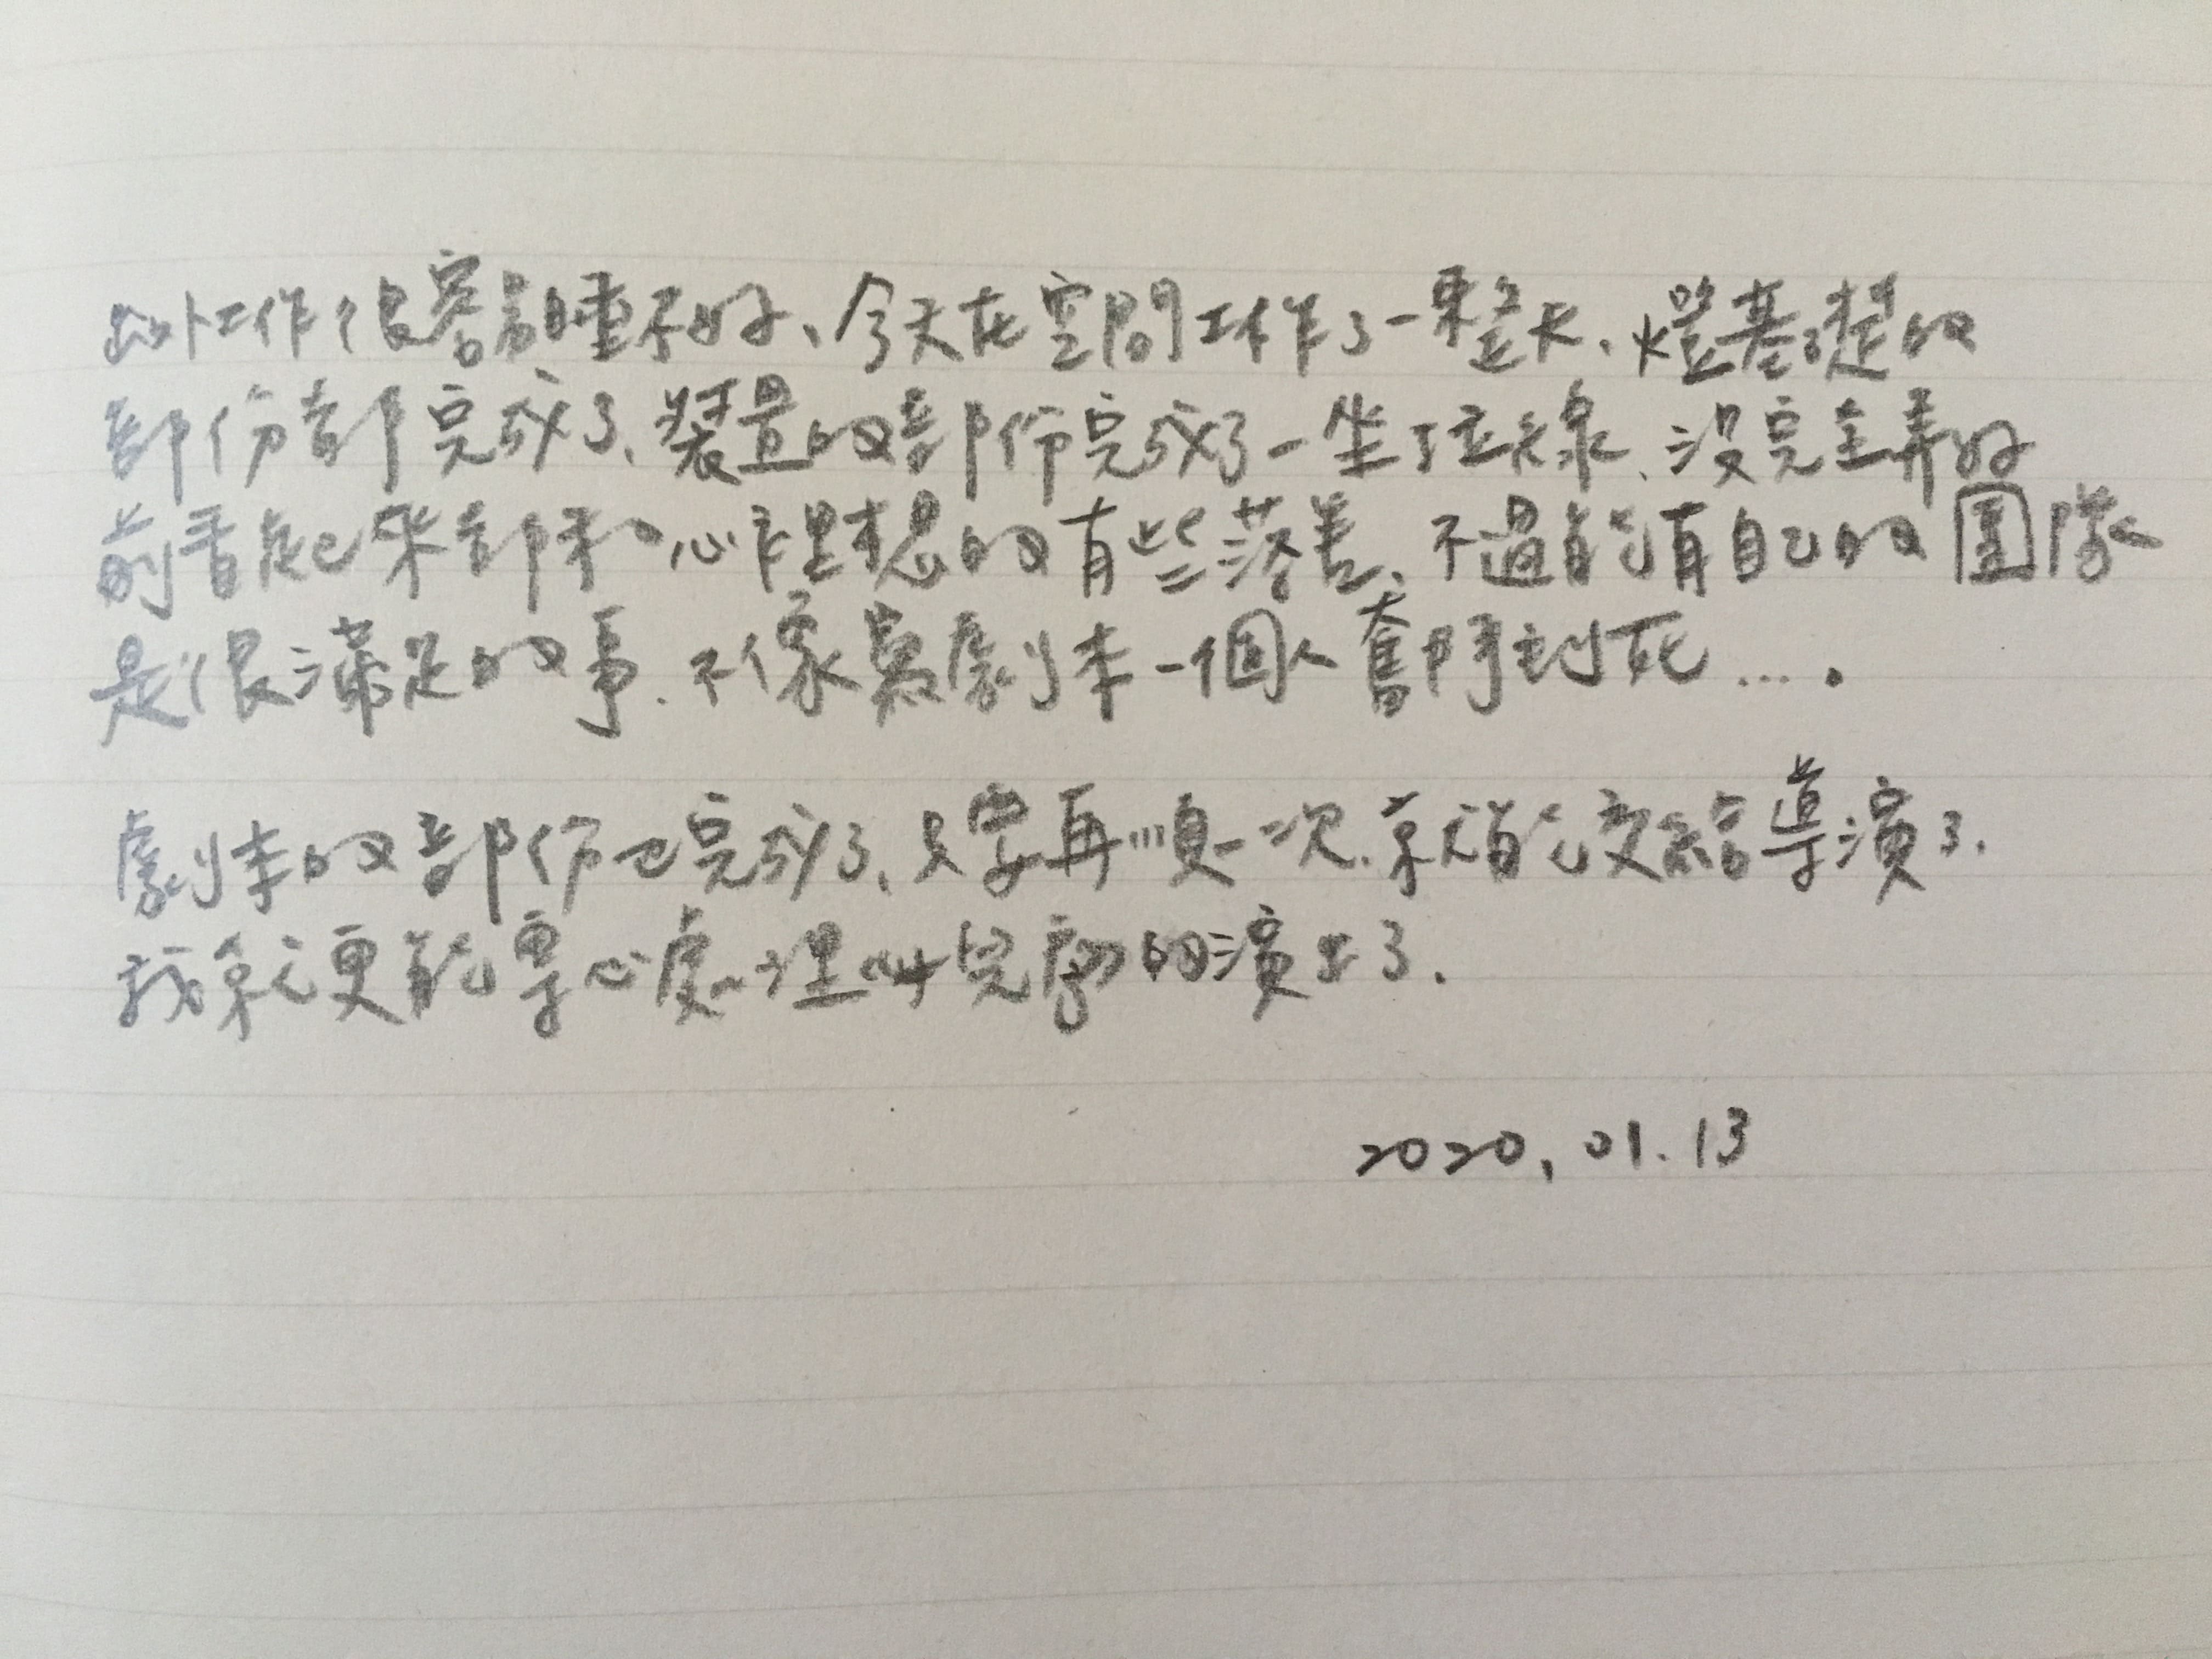 出外工作很容易睡不好、今天在空間工作了一整天、燈基礎的
部份都完成了、裝置的部份完成了一半了在線、沒完全弄好
前看起來都和心裡想的有些落差、不過能有自己的團隊
是很滿足的事、不像寫劇本一個人奮鬥到死....
劇本的部份也完成了、只需再順一次、就能交給導演了、
我就更能專心處理的演出了.
2020.01.13